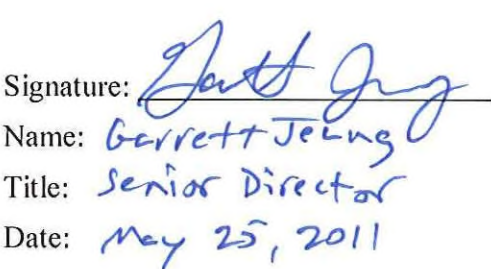 Signature: Garrett Jeung
Name: Garrett Jeung
Title: Senior Director
Date: May 25, 2011